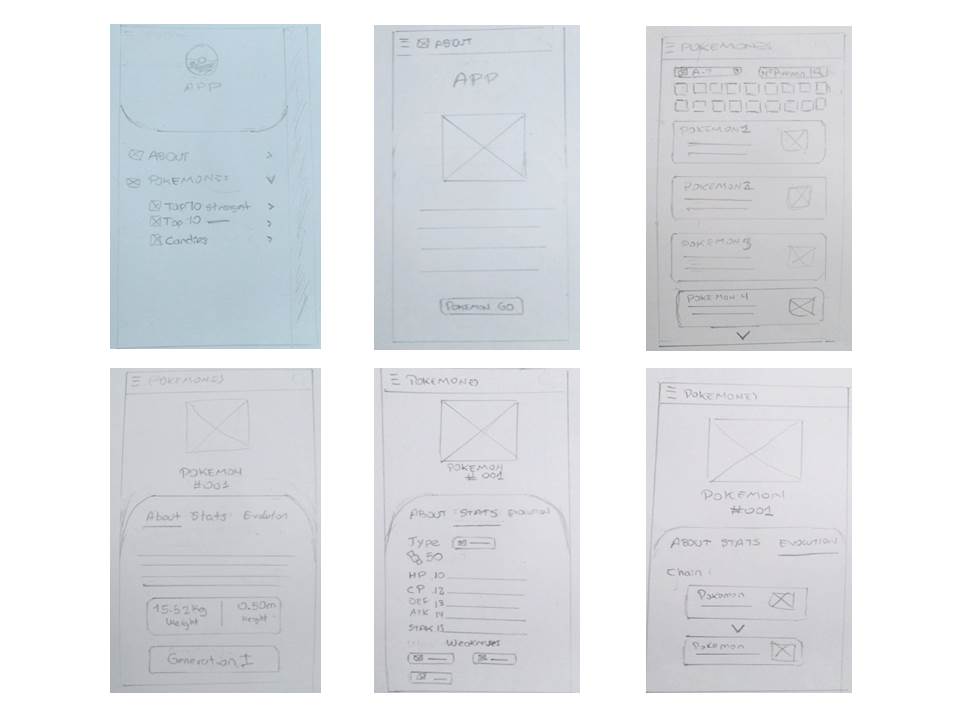 APP
ABOUT
POKEMONES
Top 10 strenght
Top 10
Candies
ABOUT
APP
POKEMON GO
POKEMONES
A-Z
POKEMON 1
POKEMON 2
POKEMON 3
POKEMON 4
POKEMONES
POKEMON
#001
About Stats Evolution
15.52Kg 0.50m
Weight Height
Generation I
POKEMONES
POKEMON
# 001
ABOUT STATS EVOLUTION
Type
50
HP 10
CP 12
DEF 13
ATK 14
STAK 15
Weaknesses
POKEMONES
POKEMON
#001
ABOUT STATS EVOLUTION
Chain:
Pokemon
Pokemon